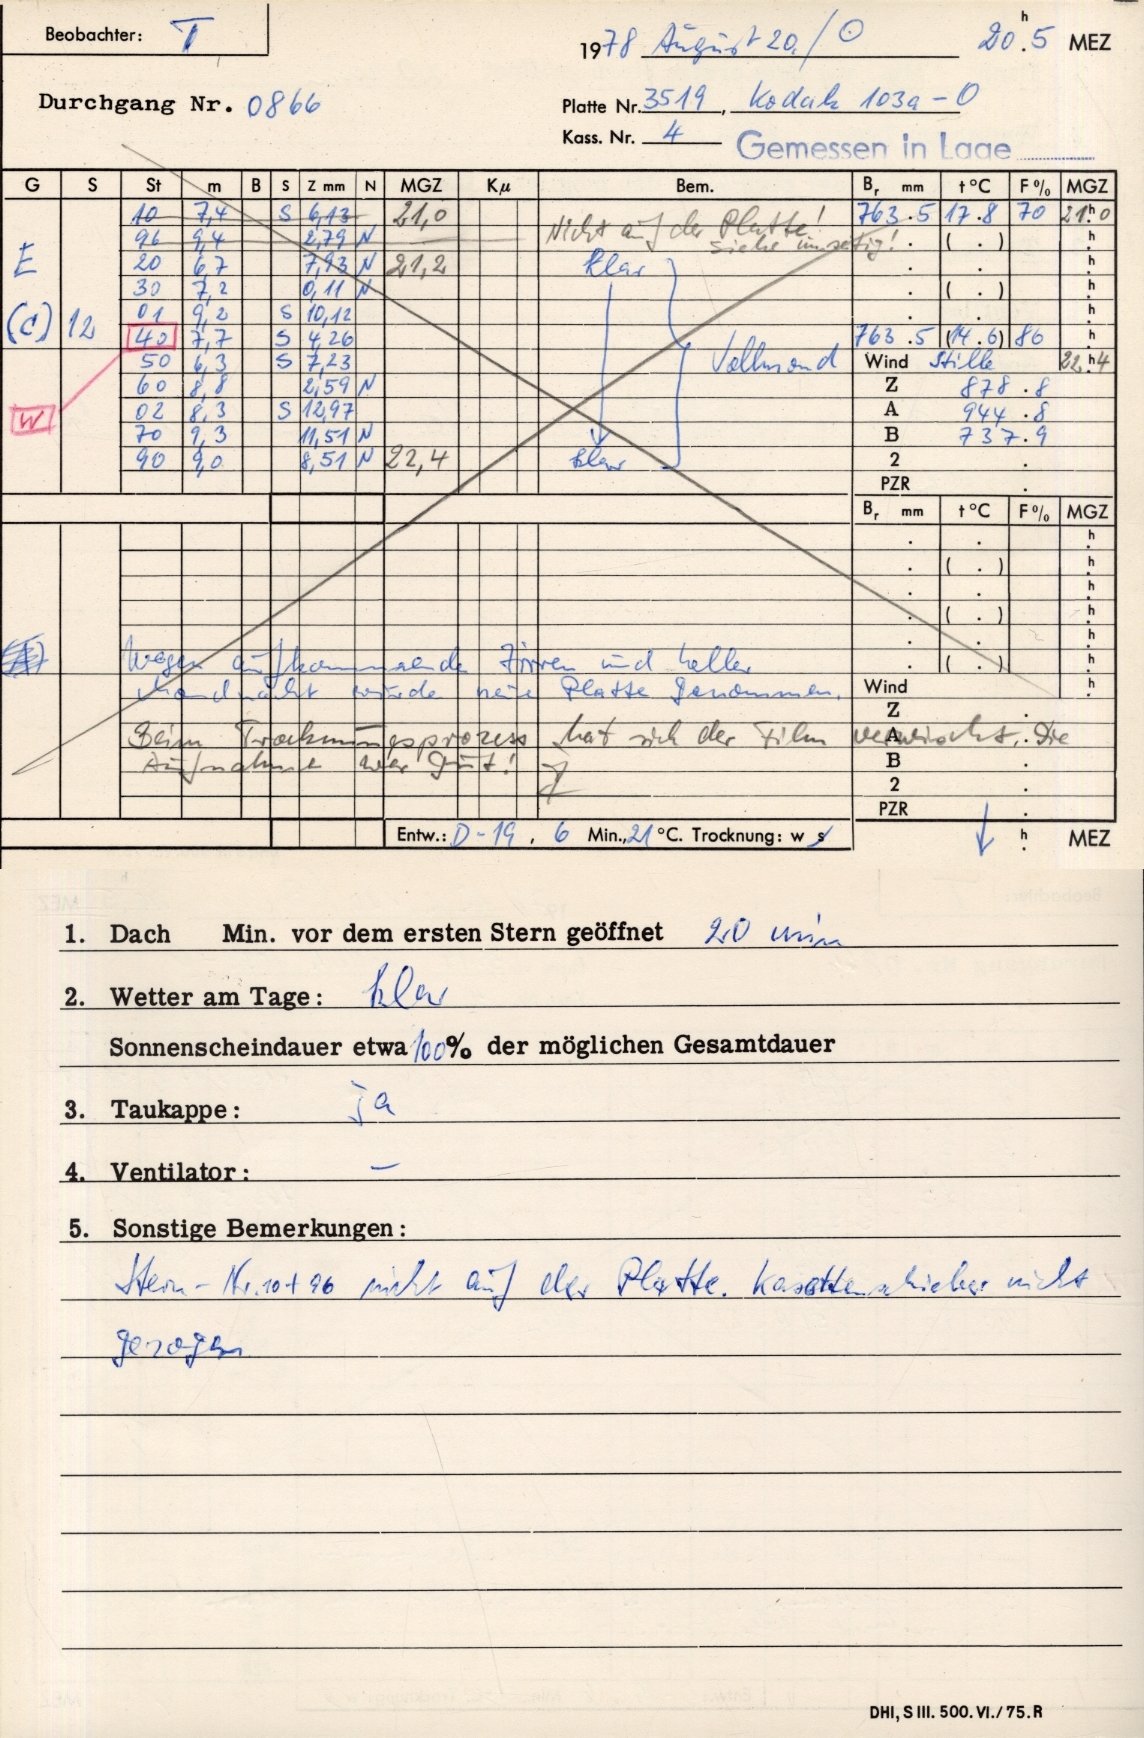 Beobachter: T
1978 August 20./O 20h.5 MEZ
Durchgang Nr. 0866
Platte Nr. 3519, Kodak 103a-O
Kass. Nr. 4 Gemessen in Lage
G S St m B S Z mm N MGZ Kμ Bem. Br mm t °C F% MGZ
10 7,4 S 6,13 21,0 Nicht auf der Platte! 763.5 17.8 70 21h.0
96 9,4 2,79 N siehe umseitig! . ( . ) h.
E 20 6,7 7,93 N 21,2 klar . . h.
30 7,2 0,11 N . ( . ) h.
(d) 12 01 9,2 S 10,12 . . h.
40 7,7 S 4,26 763.5 (14.6) 86 h.
50 6,3 S 7,23 Vollmond Wind Stille 22h.4
60 8,8 2,59 N Z 878.8
W 02 8,3 S 12,97 A 944.8
70 9,3 11,51 N B 737.9
90 9,0 8,51 N 22,4 klar 2 .
PZR .
Br mm t °C F% MGZ
. . h.
. ( . ) h.
. . h.
. ( . ) h.
. . h.
Wegen aufkommende Zirren und heller . ( . ) h.
Mondnacht wurde neue Platte genommen. Wind h.
Z .
Beim Trocknungsprozess hat sich der Film verwischt. Die A .
Aufnahme war gut! B .
2 .
PZR .
Entw.: D-19, 6 Min., 21 °C. Trocknung: w s h. MEZ
1. Dach Min. vor dem ersten Stern geöffnet 20 min
2. Wetter am Tage: klar
Sonnenscheindauer etwa 100% der möglichen Gesamtdauer
3. Taukappe: ja
4. Ventilator: –
5. Sonstige Bemerkungen:
Stern-Nr. 10+96 nicht auf der Platte. Kassettenschieber nicht
gezogen
DHI, S III. 500. VI./75. R